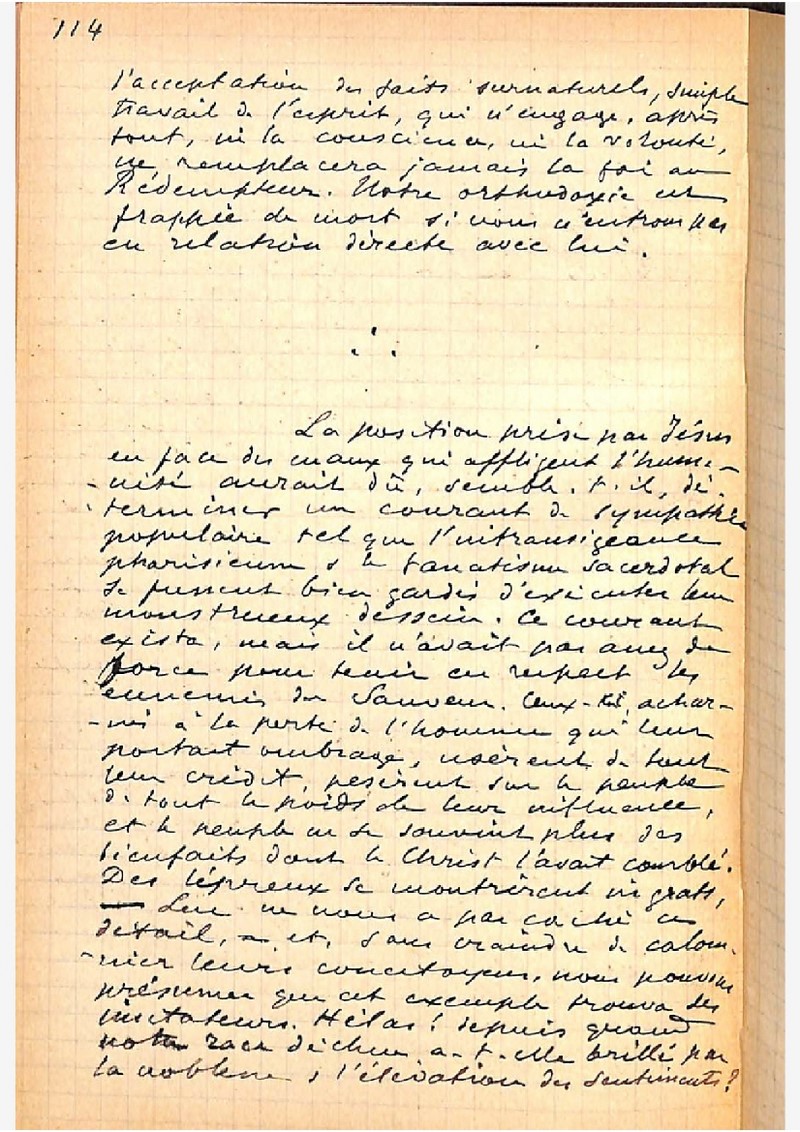 114
l'acceptation des faits surnaturels, simple
travail de l'esprit, qui n'engage, après
tout, ni la conscience, ni la volonté,
ne remplacera jamais la foi au
Rédempteur. Notre orthodoxie est
frappée de mort si nous n'entrons pas
en relation directe avec lui.
La position prise par Jésus
en face des maux qui affligent l'huma-
-nité aurait dû, semble-t-il, dé-
-terminer un courant de sympathie
populaire tel que l'intransigeance
pharisienne & le fanatisme sacerdotal
se fussent bien gardés d'exécuter leur
monstrueux dessein. Ce courant
exista, mais il n'avait pas assez de
force pour tenir en respect les
ennemis du Sauveur. Ceux-ci, achar-
-nés à la perte de l'homme qui leur
portait ombrage, usèrent de tout
leur crédit, pesèrent sur le peuple
de tout le poids de leur influence,
et le peuple ne se souvint plus des
bienfaits dont le Christ l'avait comblé.
Des lépreux se montrèrent ingrats,
— Luc ne nous a pas caché ce
détail, — et, sans craindre de calom-
-nier leurs concitoyens, nous pouvons
présumer que cet exemple trouva des
imitateurs. Hélas! depuis quand
notre race déchue a-t-elle brillé par
la noblesse & l'élévation des sentiments?